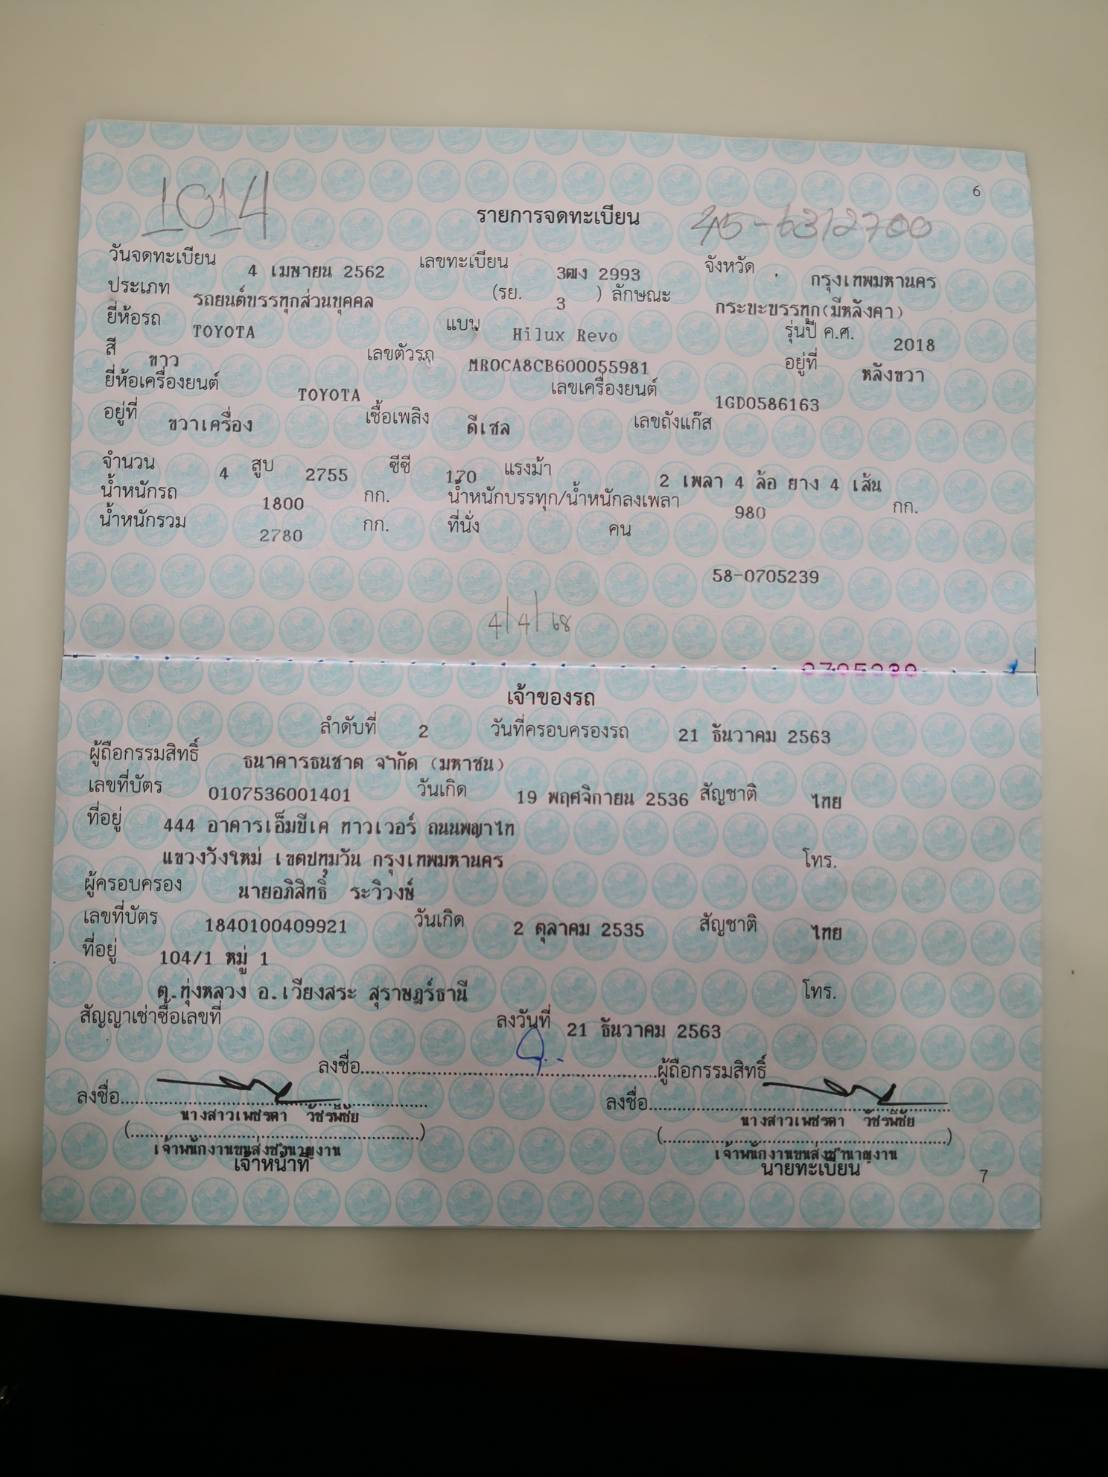 6
1014
รายการจดทะเบียน 45-6312700
วันจดทะเบียน 4 เมษายน 2562 เลขทะเบียน 3ฒง 2993 จังหวัด กรุงเทพมหานคร
ประเภท รถยนต์บรรทุกส่วนบุคคล (รย. 3 ) ลักษณะ กระบะบรรทุก(มีหลังคา)
ยี่ห้อรถ TOYOTA แบบ Hilux Revo รุ่นปี ค.ศ. 2018
สี ขาว เลขตัวรถ MR0CA8CB600055981 อยู่ที่ หลังขวา
ยี่ห้อเครื่องยนต์ TOYOTA เลขเครื่องยนต์ 1GD0586163
อยู่ที่ ขวาเครื่อง เชื้อเพลิง ดีเซล เลขถังแก๊ส
จำนวน 4 สูบ 2755 ซีซี 170 แรงม้า 2 เพลา 4 ล้อ ยาง 4 เส้น
น้ำหนักรถ 1800 กก. น้ำหนักบรรทุก/น้ำหนักลงเพลา 980 กก.
น้ำหนักรวม 2780 กก. ที่นั่ง คน
58-0705239
4/4/68
0705239
เจ้าของรถ
ลำดับที่ 2 วันที่ครอบครองรถ 21 ธันวาคม 2563
ผู้ถือกรรมสิทธิ์ ธนาคารธนชาต จำกัด (มหาชน)
เลขที่บัตร 0107536001401 วันเกิด 19 พฤศจิกายน 2536 สัญชาติ ไทย
ที่อยู่ 444 อาคารเอ็มบีเค ทาวเวอร์ ถนนพญาไท
แขวงวังใหม่ เขตปทุมวัน กรุงเทพมหานคร โทร.
ผู้ครอบครอง นายอภิสิทธิ์ ระวิวงษ์
เลขที่บัตร 1840100409921 วันเกิด 2 ตุลาคม 2535 สัญชาติ ไทย
ที่อยู่ 104/1 หมู่ 1
ต.ทุ่งหลวง อ.เวียงสระ สุราษฎร์ธานี โทร.
สัญญาเช่าซื้อเลขที่ ลงวันที่ 21 ธันวาคม 2563
ลงชื่อ ผู้ถือกรรมสิทธิ์
ลงชื่อ ลงชื่อ
นางสาวเพชรดา วัชรพิชัย นางสาวเพชรดา วัชรพิชัย
เจ้าพนักงานขนส่งชำนาญงาน เจ้าพนักงานขนส่งชำนาญงาน
เจ้าหน้าที่ นายทะเบียน
7